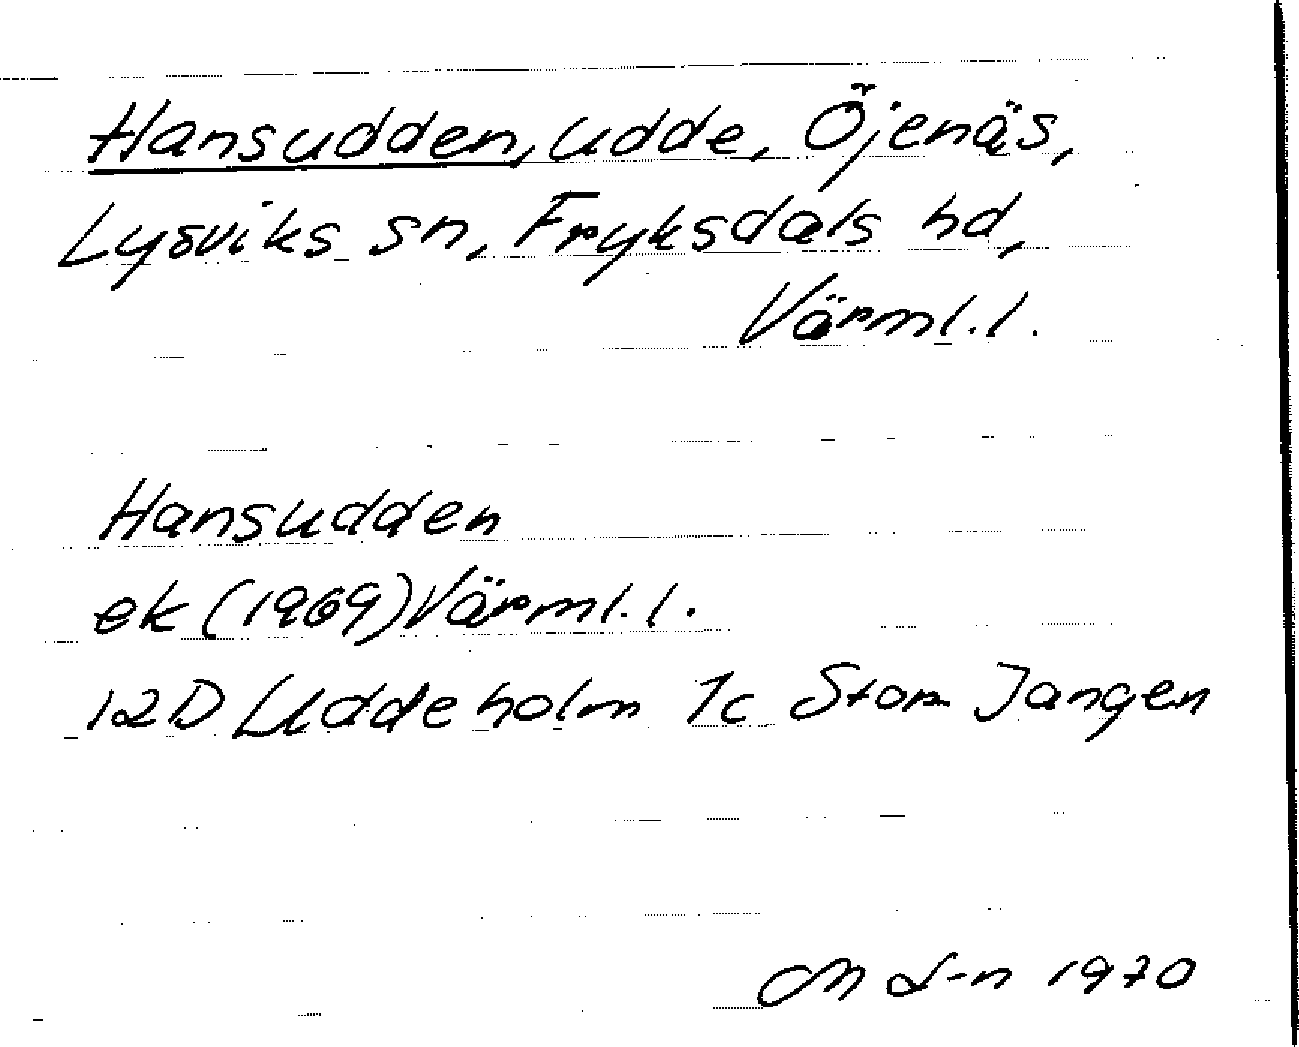 Hansudden, udde, Öjenäs,
Lysviks sn, Fryksdals hd,
Värml.l.
Hansudden
ek (1969) Värml.l.
12D Uddeholm 1c Stor Jangen
M L-n 1970